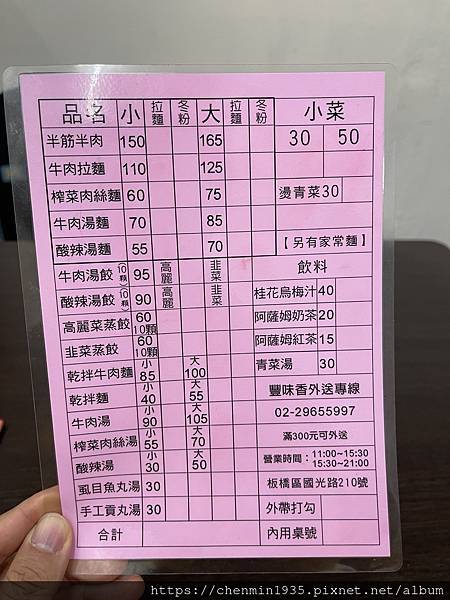 品名 小 拉麵 冬粉 大 拉麵 冬粉 小菜
半筋半肉 150 165 30 50
牛肉拉麵 110 125
榨菜肉絲麵 60 75 燙青菜30
牛肉湯麵 70 85
酸辣湯麵 55 70 【另有家常麵】
牛肉湯餃(10顆) 95 高麗 韭菜 飲料
酸辣湯餃(10顆) 90 高麗 韭菜 桂花烏梅汁 40
高麗菜蒸餃 60 10顆 阿薩姆奶茶 20
韭菜蒸餃 60 10顆 阿薩姆紅茶 15
乾拌牛肉麵 小 85 大 100 青菜湯 30
乾拌麵 小 40 大 55 豐味香外送專線
牛肉湯 小 90 大 105 02-29655997
榨菜肉絲湯 小 55 大 70 滿300元可外送
酸辣湯 小 30 大 50 營業時間：11:00~15:30
15:30~21:00
虱目魚丸湯 30 板橋區國光路210號
手工貢丸湯 30 外帶打勾
合計 內用桌號
https://chenmin1935.pixnet.net/album